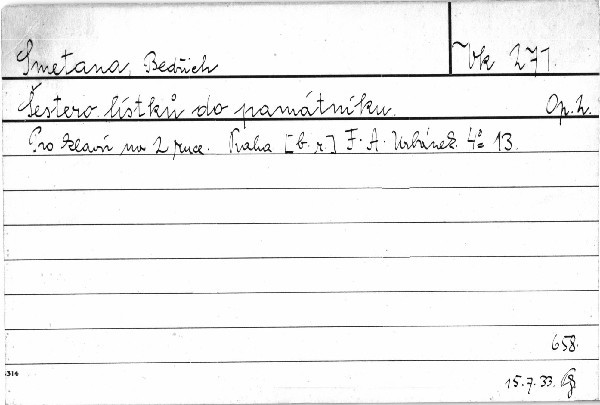 Smetana, Bedřich Vk 271.
Šestero lístků do památníku. Op. 2.
Pro klavír na 2 ruce. Praha [b. r.] F. A. Urbánek. 4° 13.
658.
314
15.7.33.